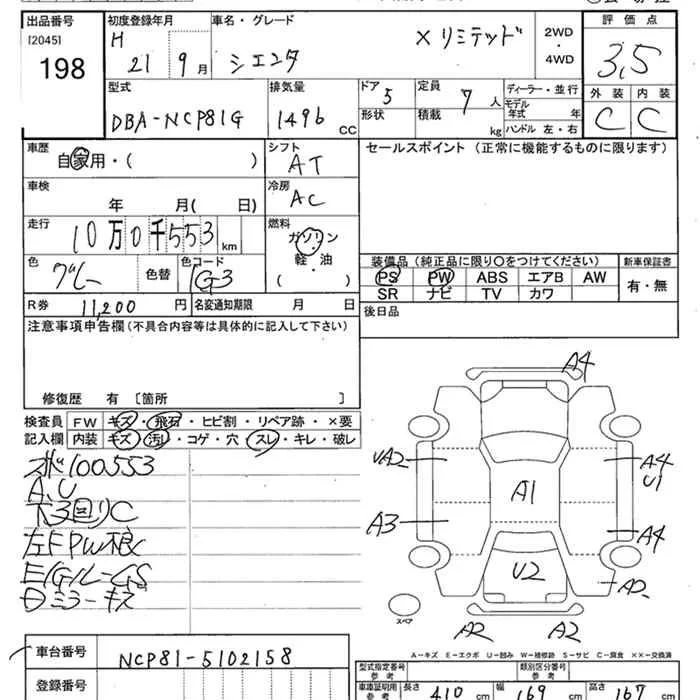 出品番号 初度登録年月 車名・グレード 評価点
[2045] H 21 9月 シエンタ Xリミテッド 2WD・4WD 3.5
198 外装 内装
型式 排気量 ドア 5 定員 7人 ディーラー・並行 C C
DBA-NCP81G 1496 CC 形状 積載 kg モデル年式 年
ハンドル 左・右
車歴 シフト セールスポイント (正常に機能するものに限ります)
自家用・( ) AT
車検 冷房
年 月( 日) AC
走行 燃料
10万0千553km ガソリン
軽・油
( )
色 色替 色コード 装備品 (純正品に限り○をつけてください) 新車保証書
グレー 1G3 PS PW ABS エアB AW 有・無
SR ナビ TV カワ
R券 11,200円 名変通知期限 月 日 後日品
注意事項申告欄(不具合内容等は具体的に記入して下さい)
修復歴 有 [箇所 ]
検査員 FW キズ・飛石・ヒビ割・リペア跡・×要
記入欄 内装 キズ・汚れ・コゲ・穴・スレ・キレ・破レ
100553
A.U
下3回りC
左FPW
E/G
ミラーキズ
A4
UA2 A4
U1
A1
A3 A4
U2 A2
スペア
A2 A2
A-キズ E-エクボ U-凹み W-補修跡 S-サビ C-腐食 ××-交換済
車台番号 NCP81-5102158
登録番号
型式指定番号 参考 類別区分番号 参考
車庫証明用 参考 長さ 410cm 幅 169cm 高さ 167cm